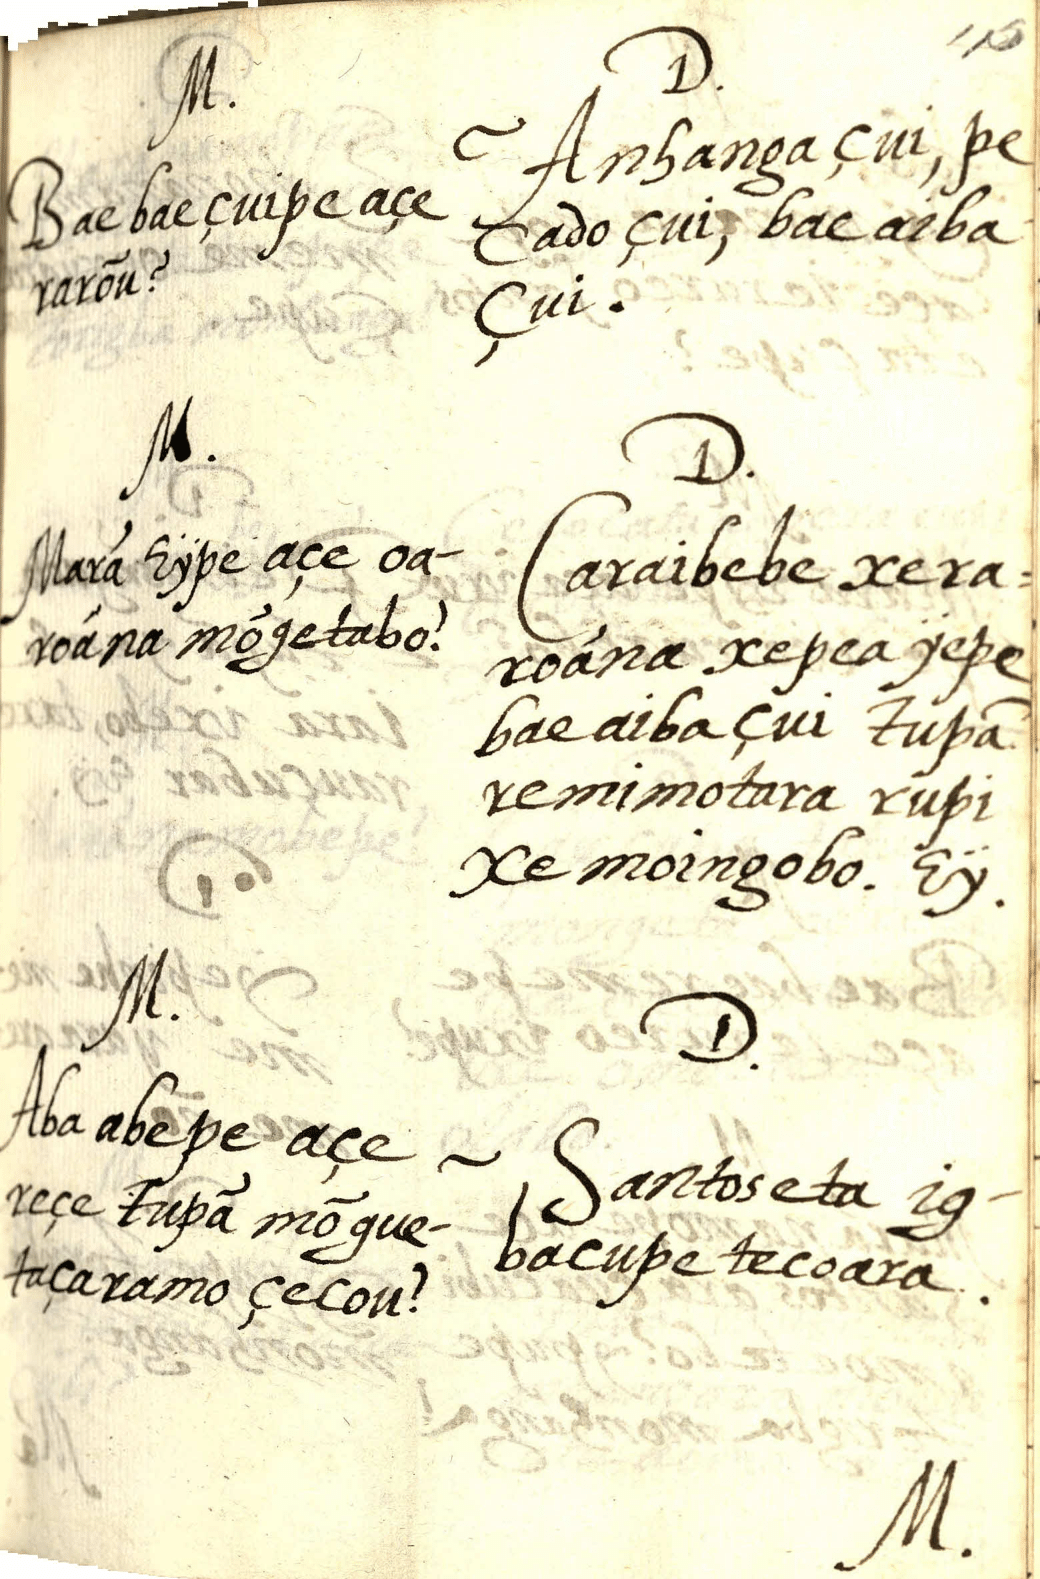 M.
Bae bae çuipe açe
rarõu?
D.
Anhanga çui, pe
cado çui, bae aiba
çui.
M.
Marã Eÿpe açe oa-
roána mõgetabo?
D.
Caraibebe xera=
roána xepea ÿepe
bae aiba çui tupã
remimotara rupi
xe moingobo. Eÿ.
M.
Aba abe pe açe
reçe tupã mõgue-
taçaramo çecou?
D.
Santos eta ig-
bacupe tecoara.
M.